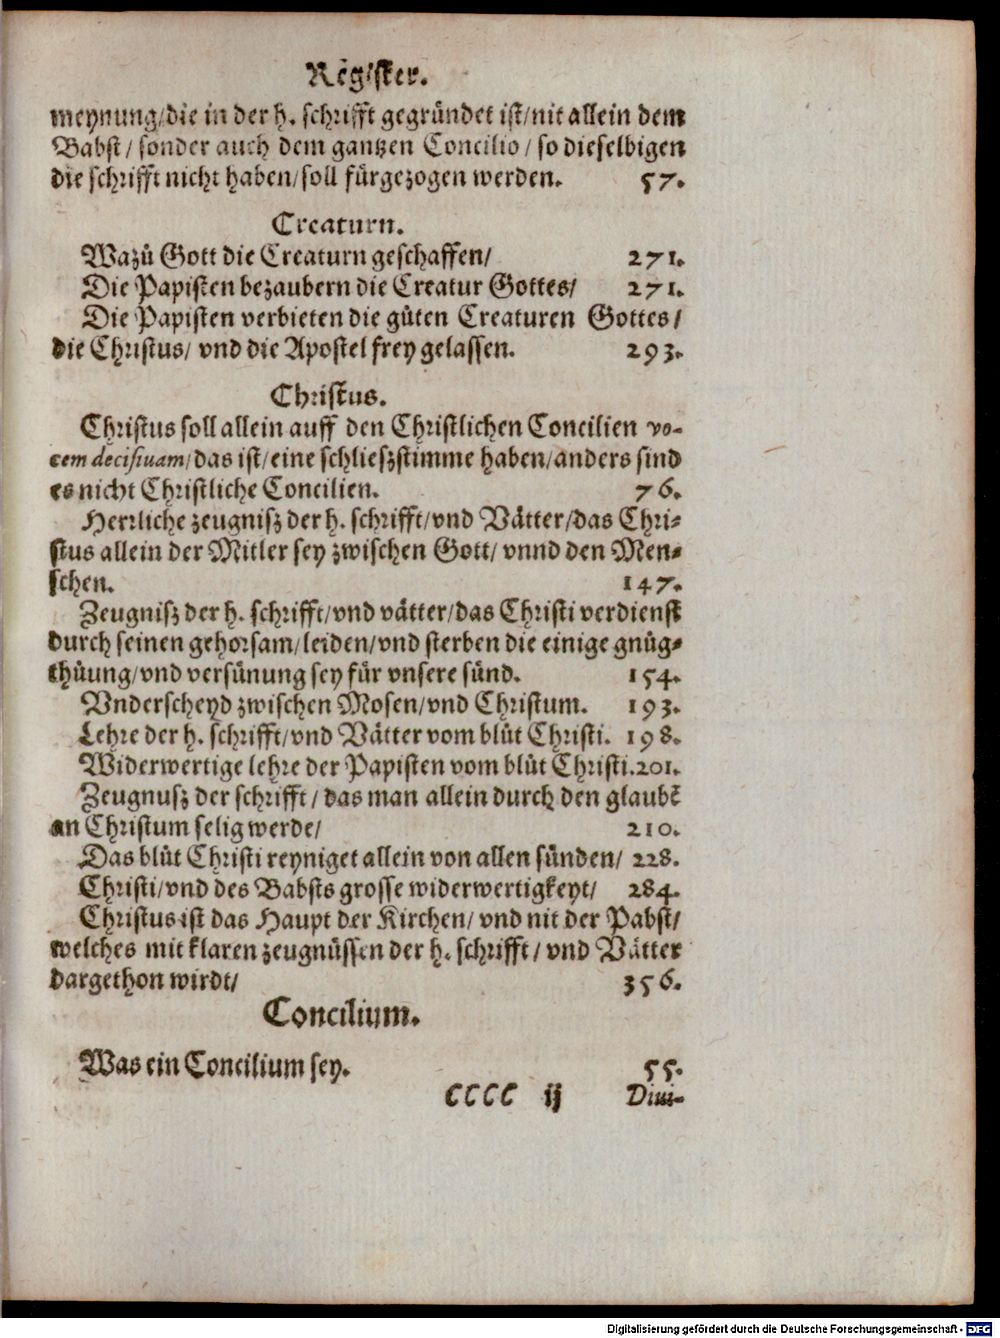 Register.
meynung/die in der h. schrifft gegründet ist/nit allein dem
Babst/ sonder auch dem gantzen Concilio/ so dieselbigen
die schrifft nicht haben/soll fürgezogen werden. 57.
Creaturn.
Wazů Gott die Creaturn geschaffen/ 271.
Die Papisten bezaubern die Creatur Gottes/ 271.
Die Papisten verbieten die gůten Creaturen Gottes/
die Christus/ vnd die Apostel frey gelassen. 293.
Christus.
Christus soll allein auff den Christlichen Concilien vo-
cem decisiuam/das ist/eine schlieszstimme haben/anders sind
es nicht Christliche Concilien. 76.
Herrliche zeugnisz der h. schrifft/vnd Vätter/das Chri-
stus allein der Mitler sey zwischen Gott/ vnnd den Men-
schen. 147.
Zeugnisz der h. schrifft/vnd vätter/das Christi verdienst
durch seinen gehorsam/leiden/vnd sterben die einige gnůg-
thůung/vnd versünung sey für vnsere sünd. 154.
Vnderscheyd zwischen Mosen/vnd Christum. 193.
Lehre der h. schrifft/vnd Vätter vom blůt Christi. 198.
Widerwertige lehre der Papisten vom blůt Christi. 201.
Zeugnusz der schrifft/ das man allein durch den glaubẽ
an Christum selig werde/ 210.
Das blůt Christi reyniget allein von allen sünden/ 228.
Christi/vnd des Babsts grosse widerwertigkeyt/ 284.
Christus ist das Haupt der Kirchen/ vnd nit der Pabst/
welches mit klaren zeugnüssen der h. schrifft/ vnd Vätter
dargethon wirdt/ 356.
Concilium.
Was ein Concilium sey. 55.
CCCC ij Diui-
Digitalisierung gefördert durch die Deutsche Forschungsgemeinschaft - DFG